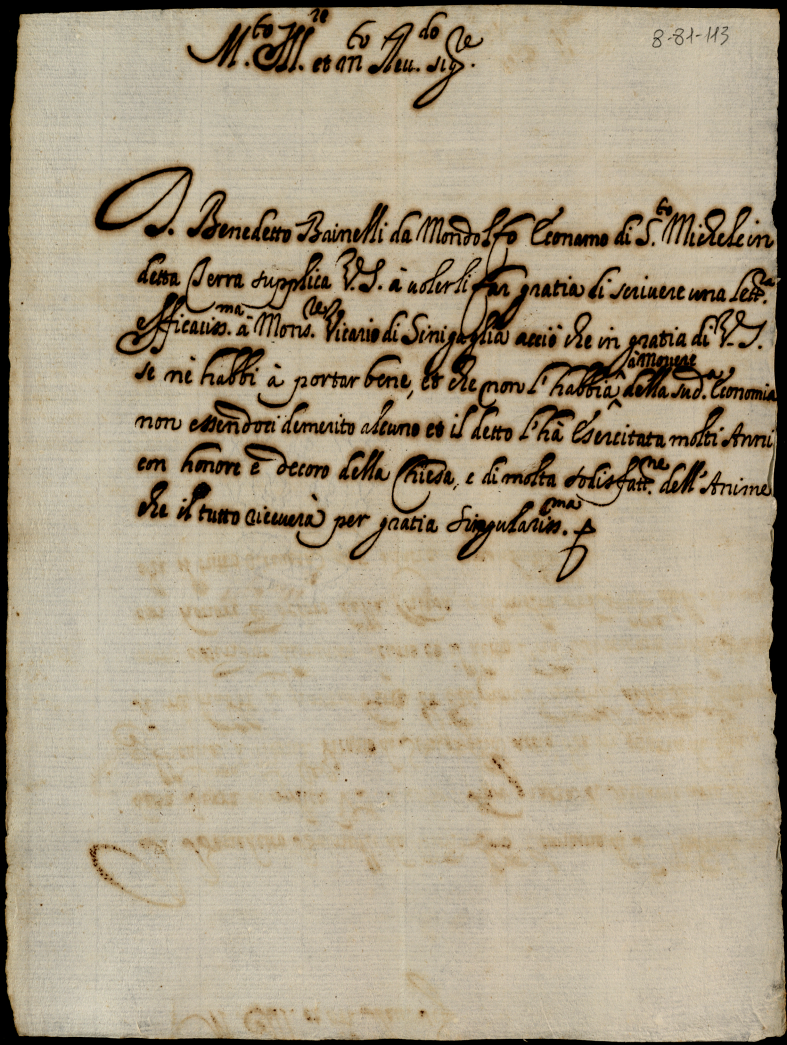 8-81-113
M.to Ill.re et m.to Reu.do sig.re
D. Benedetto Bainelli da Mondolfo Economo di S.to Michele in
detta Terra supplica V.S. à uolerli far gratia di scriuere una lett.a
efficaciss.ma à Mons.re Vicario di Sinigaglia acciò che in gratia di V.S.
se nè habbi à portar bene, et che non l'habbia della sud.a Economia
à Mouere
non essendoci demerito alcuno et il detto l'hà Esercitata molti Anni
con honore e decoro della Chiesa, e di molta sodisfatt.ne dell'Anime
che il tutto riceuerà per gratia singulariss.ma